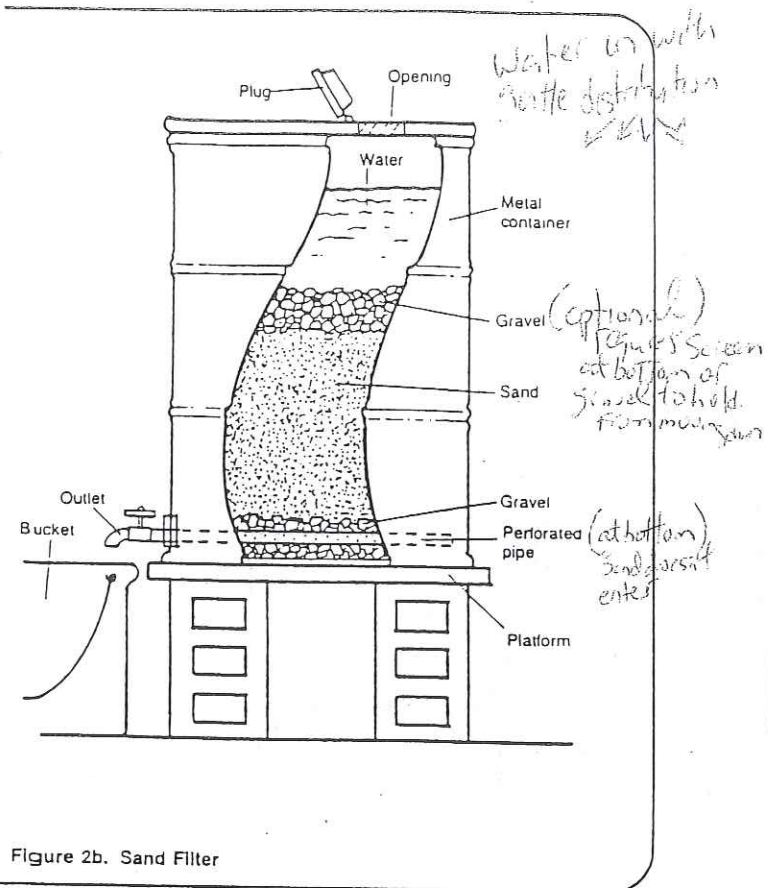 Water in with
gentle distribution
Plug
Opening
Water
Metal
container
Gravel (optional)
requires screen
at bottom of
gravel to hold
from moving down
Sand
Gravel
Outlet
Bucket
Perforated
pipe
(at bottom)
Sand doesn't
enter
Platform
Figure 2b. Sand Filter